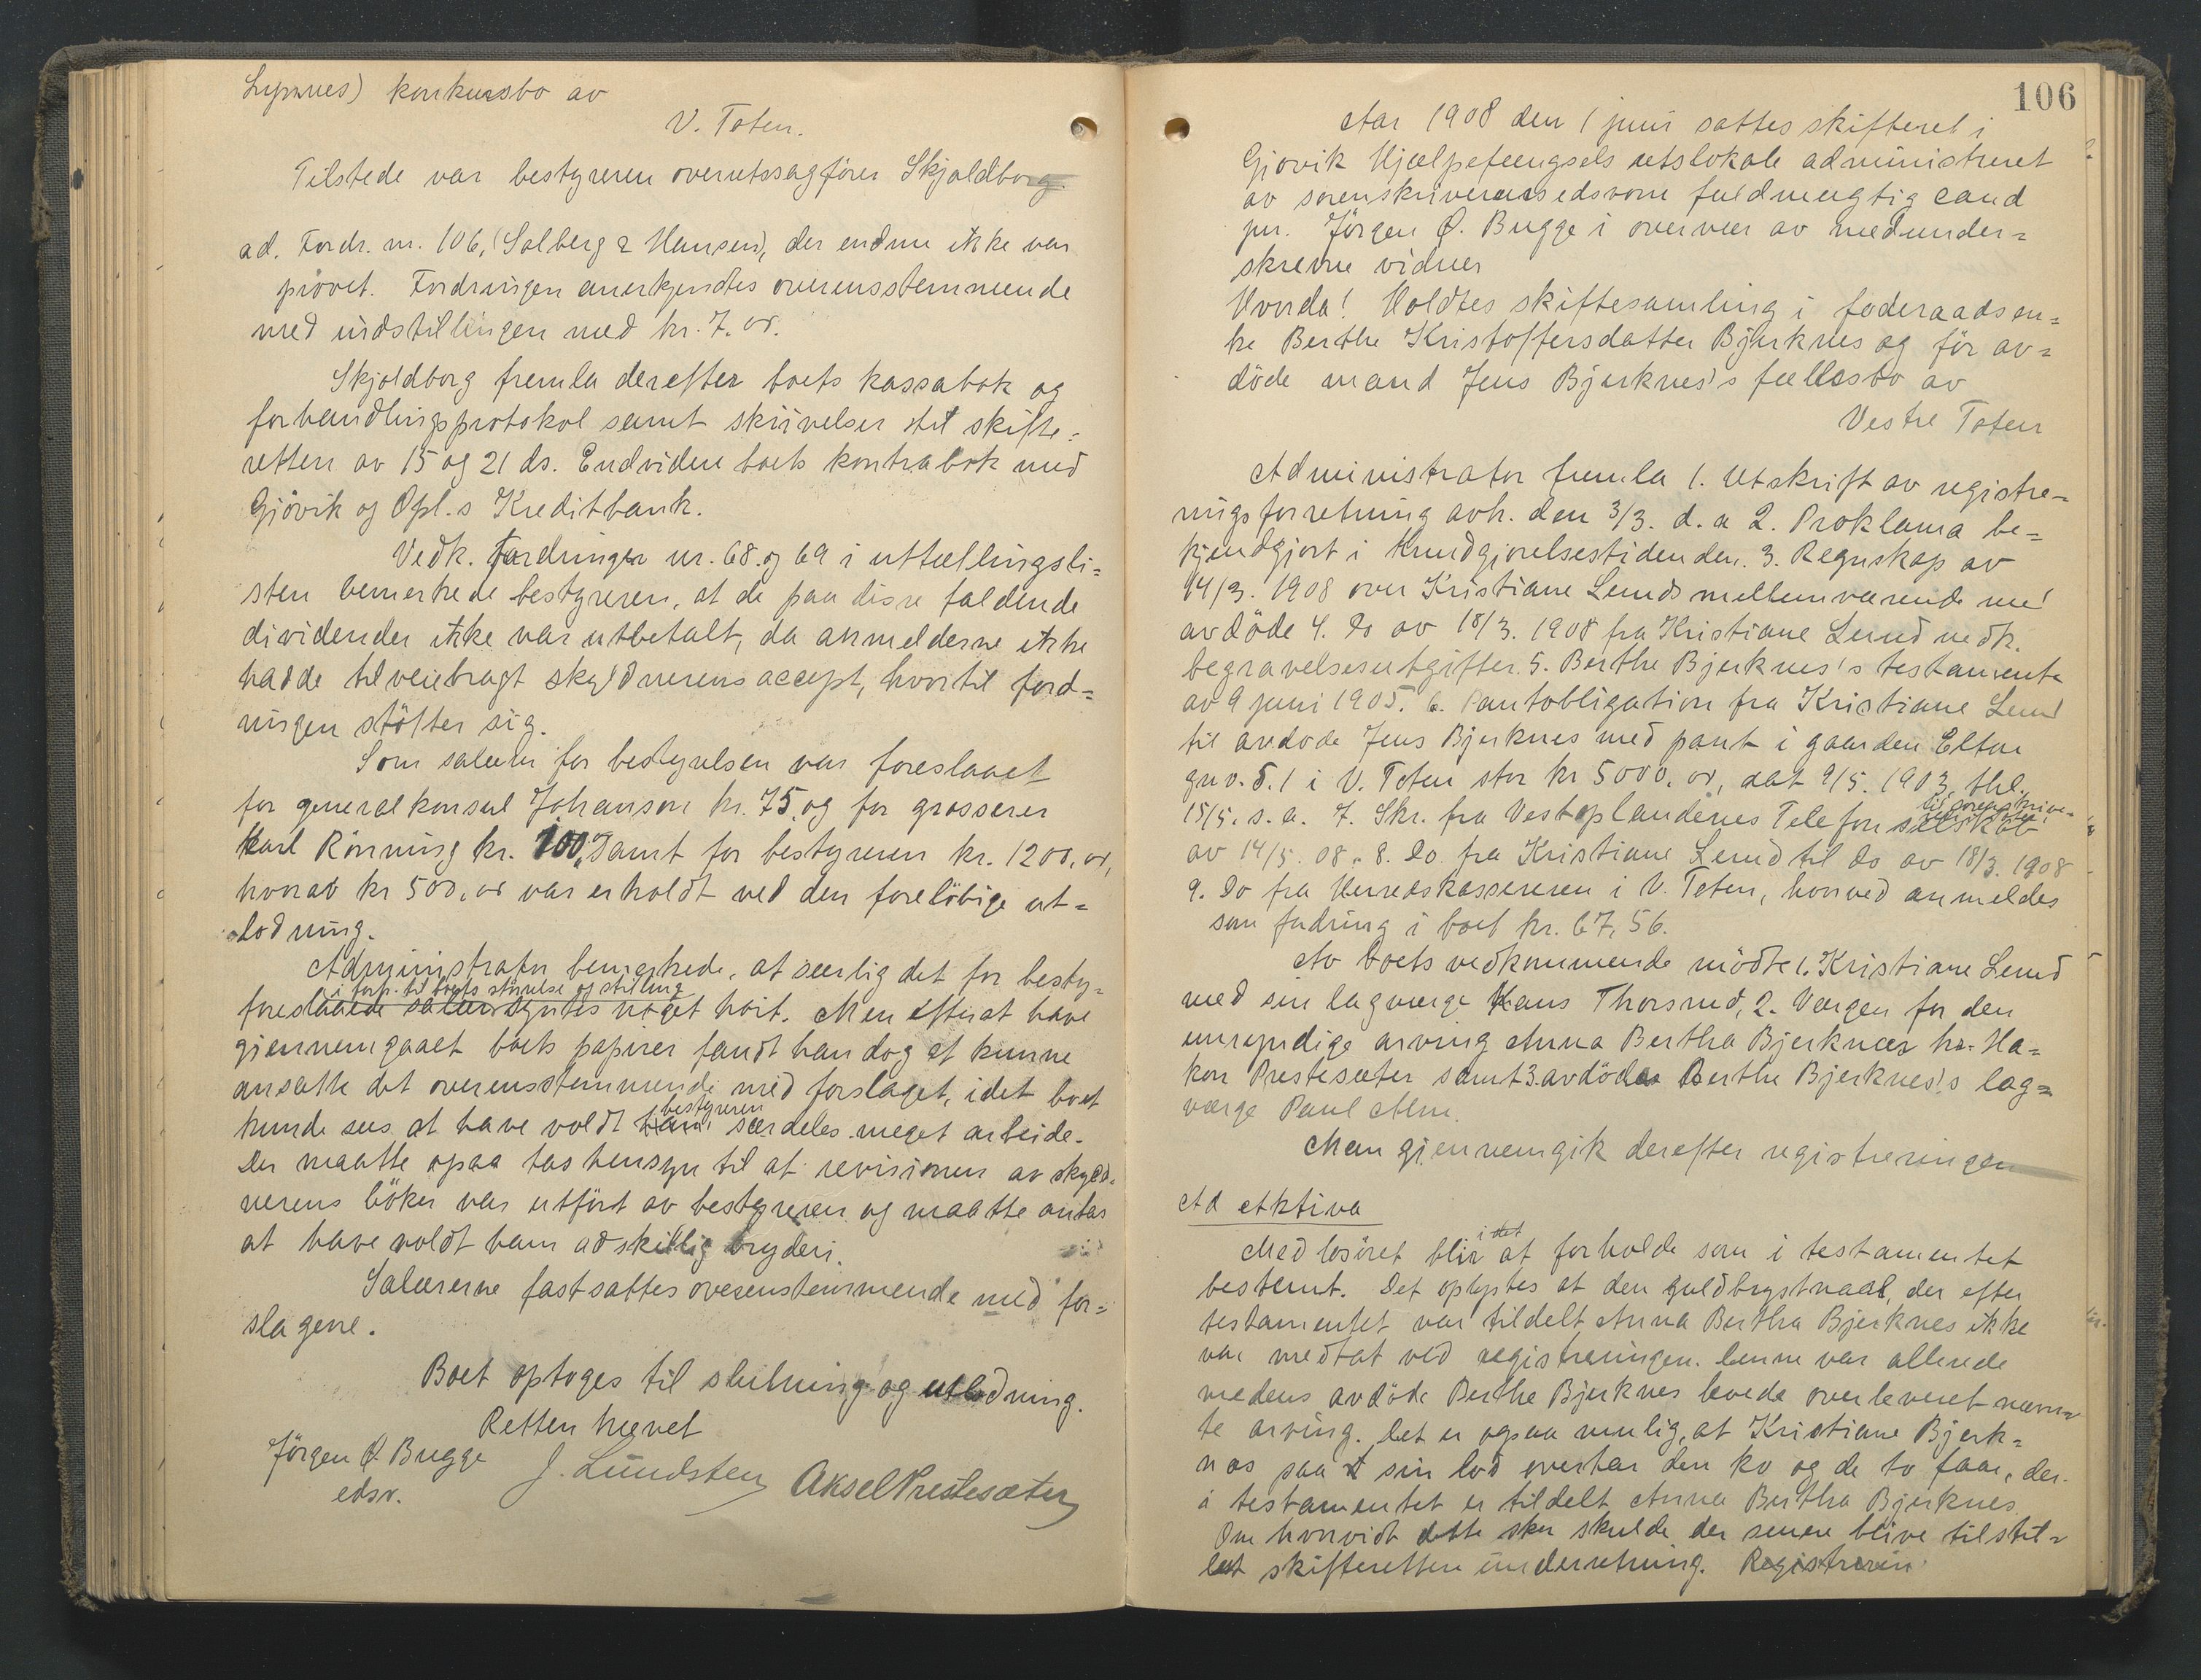 konkursbo av
V. Toten.
Tilstede var bestyreren overretssagfører Skjoldborg.
ad. Fordr. nr. 106, (Solberg & Hansen), der endnu ikke var
prövet. Fordringen anerkjendtes overensstemmende
med indstillingen med kr. 7. 00.
Skjoldborg fremla derefter boets kassabok og
forhandlingsprotokol samt skrivelser til skifte=
retten av 15 og 21 ds. Endvidere boets kontrabok med
Gjövik og Opl.s Kreditbank.
Vedk. Fordringer nr. 68. og 69 i uttællingsli=
sten bemerkede bestyreren, at de paa disse faldende
dividender ikke var utbetalt, da anmelderne ikke
hadde tilveiebragt skyldnerens accept, hvortil ford=
ringen stötter sig.
Som salær for bestyrelsen var foreslaaet
for generalkonsul Johanson kr. 75, og for grosserer
Karl Rönning kr. 100, Samt for bestyreren kr. 1200, 00,
hvorav kr 500, 00 var erholdt ved den forelöbige ut=
lodning.
Administrator bemerkede, at særlig det for besty=
i forh. til boets styrelse og stilling
foreslaaede salær syntes noget höit. Men efterat have
gjennemgaaet boets papirer fandt han dog at kunne
ansætte det overensstemmende med forslaget, idet boet
bestyreren
kunde sees at have voldt ham særdeles meget arbeide.
Der maatte ogsaa tas hensyn til at revisionen av skyld=
nerens böker var utfört av bestyreren og maatte antas
at have voldt ham adskillig bryderi.
Salærerne fastsattes overenstemmende med for=
slagene.
Boet optoges til slutning og utlodning.
Retten hævet
Jörgen Ø. Bugge J. Lundsten Aksel Prestesæter
edsv.
106
Aar 1908 den 1 juni sattes skifteret i
Gjövik Hjælpefængsels retslokale administreret
av sorenskriverens edsvorne fuldmægtig cand
jur. Jörgen Ø. Bugge i overvær av medunder=
skrevne vidner
Hvorda! Holdtes skiftesamling i föderaadsen=
ke Berthe Kristoffersdatter Bjerknes og för av=
döde mand Jens Bjerknes's fællesbo av
Vestre Toten
Administrator fremla 1. Utskrift av registre=
ringsforretning avh. den 3/3. d. a 2. Proklama be=
kjendtgjort i Kundgjörelsestidenden. 3. Regnskap av
14/3. 1908 over Kristiane Lunds mellemværende med
avdöde 4. Do av 18/3. 1908 fra Kristiane Lund vedk.
begravelsesutgifter. 5. Berthe Bjerknes's testamente
av 9 juni 1905. 6. Pantobligation fra Kristiane Lund
til avdöde Jens Bjerknes med pant i gaarden Elton
gnr. 5. 1 i V. Toten stor kr 5000, 00, dat 9/5. 1903, thl.
til sorenskrive=
15/5. s. a. 7. Skr. fra Vestoplandenes Telefonselskab
av 14/5. 08. 8. Do fra Kristiane Lund til do av 18/3. 1908
9. Do fra Herredskassereren i V. Toten, hvorved anmeldes
som fordring i boet kr. 67, 56.
Av boets vedkommende mödte 1. Kristiane Lund
med sin lagværge Hans Thorsrud, 2. Værgen for den
umyndige arving Anna Bertha Bjerknes hr. Ha=
kon Prestesæter samt 3. avdöde Berthe Bjerknes's lag=
værge Paul Alm.
Man gjennemgik derefter registreringen
Ad Aktiva
i det
Med lösöret blir at forholde som i testamentet
bestemt. Det oplystes at den guldbrystnaal, der efter
testamentet var tildelt Anna Bertha Bjerknes ikke
var medtat ved registreringen. Denne var allerede
medens avdöde Berthe Bjerknes levede overleveret nævn=
te arving. Det er ogsaa mulig, at Kristiane Bjerk=
nes paa sin lod overtar den ko og de to faar, der
i testamentet er tildelt Anna Bertha Bjerknes.
Om hvorvidt dette sker skulde der senere blive tilstil=
let skifteretten underretning. Registrerin